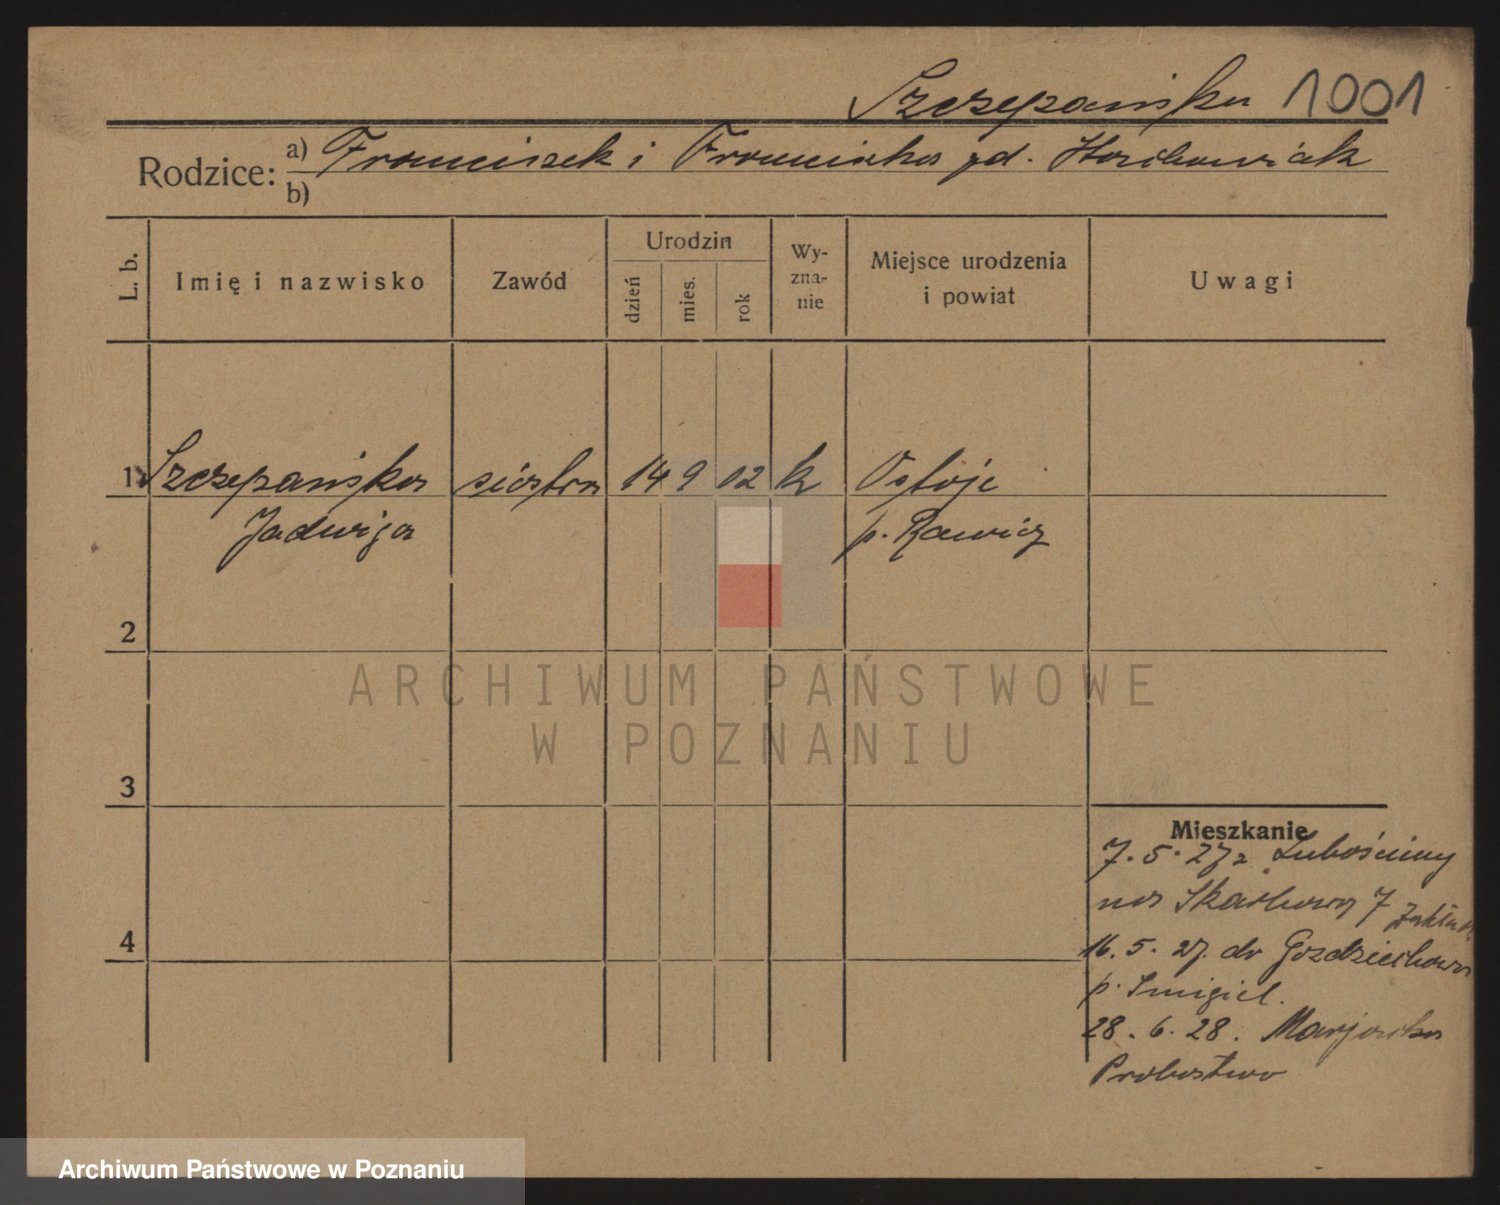 Szczepańska 1001
Rodzice: a) Franciszek i Franciszka zd.
b)
L. b.
Imię i nazwisko
Zawód
Urodzin
dzień
mies.
rok
Wy-
zna-
nie
Miejsce urodzenia
i powiat
Uwagi
1 Szczepańska siostra 14 9 02 k Ostoje
Jadwiga p. Rawicz
2
3
4
Mieszkanie
7. 5. 27 z
na Skarbową 7
16. 5. 27. do Goździechowa
p. Śmigiel.
28. 6. 28.
Probostwo
ARCHIWUM PAŃSTWOWE
W POZNANIU
Archiwum Państwowe w Poznaniu